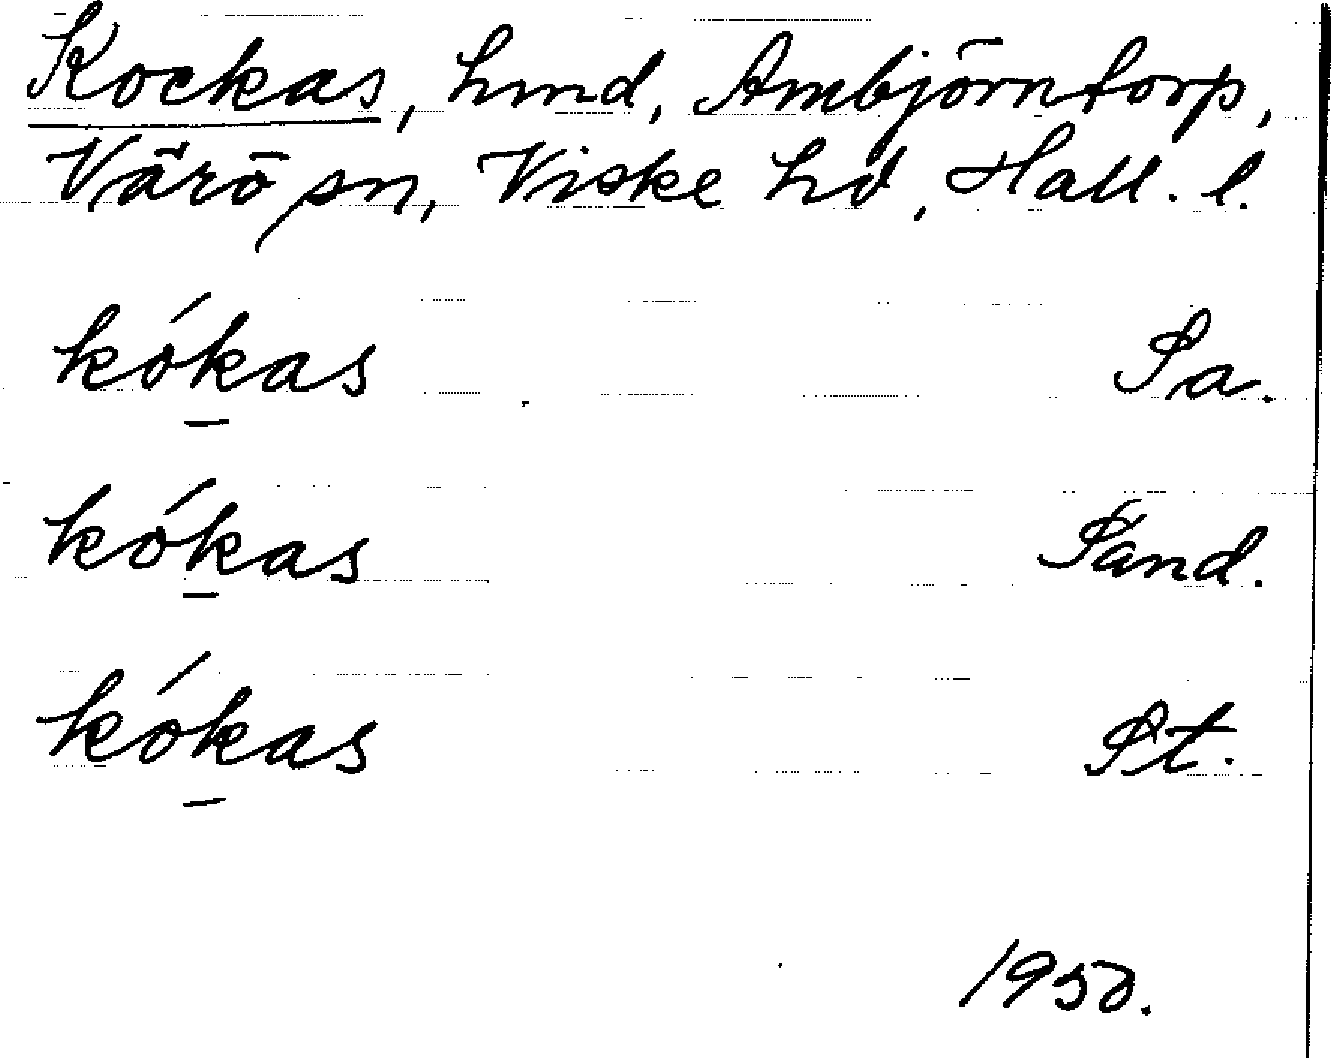 Kockas, hmd, Ambjörntorp,
Värö sn, Viske hd, Hall. l.
kó̱kas Sa.
kó̱kas Sand.
kó̱kas St.
1950.